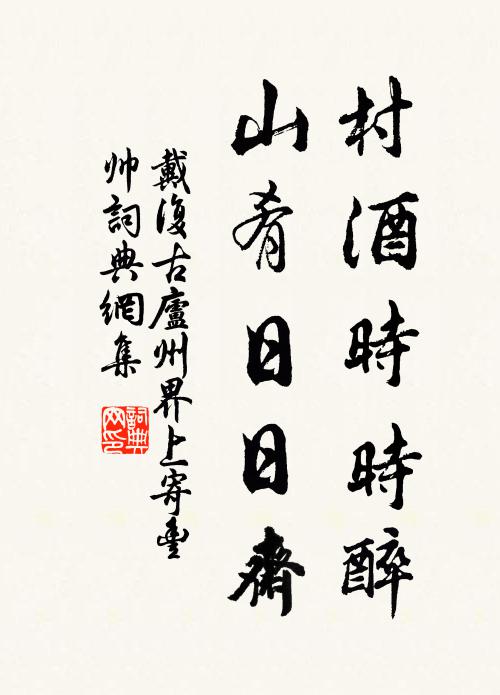 村酒時時醉
山肴日日齋
戴復古廬州界上寄豐
帅詞典網集
詞典网印